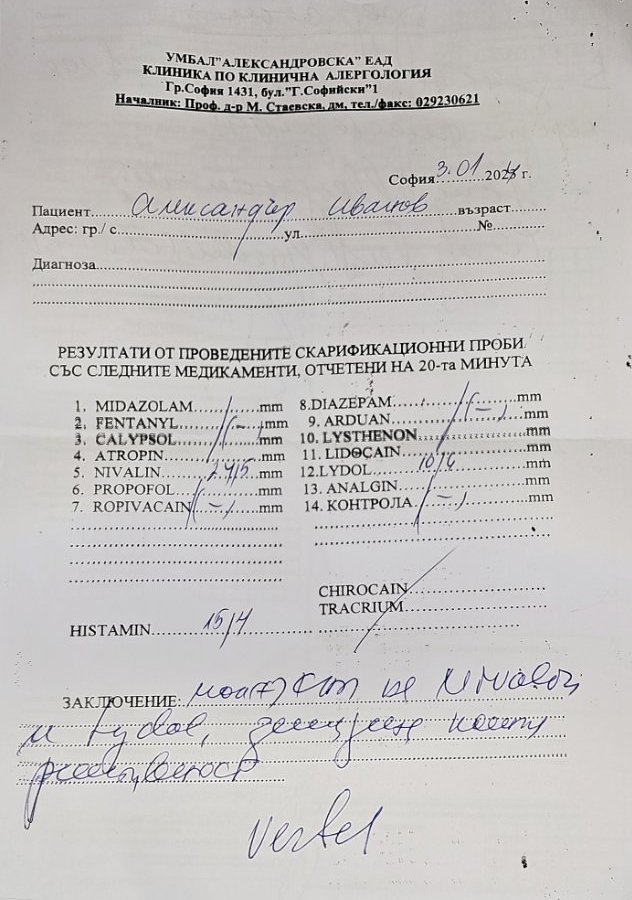 УМБАЛ"АЛЕКСАНДРОВСКА" ЕАД
КЛИНИКА ПО КЛИНИЧНА АЛЕРГОЛОГИЯ
Гр.София 1431, бул."Г.Софийски"1
Началник: Проф. д-р М. Стаевска, дм, тел./факс: 029230621
София 3.01 202 г.
Пациент Александър Иванов възраст
Адрес: гр./ с ул №
Диагноза
РЕЗУЛТАТИ ОТ ПРОВЕДЕНИТЕ СКАРИФИКАЦИОННИ ПРОБИ
СЪС СЛЕДНИТЕ МЕДИКАМЕНТИ, ОТЧЕТЕНИ НА 20-та МИНУТА
1. MIDAZOLAM mm
2. FENTANYL (-) mm
3. CALYPSOL mm
4. ATROPIN mm
5. NIVALIN mm
6. PROPOFOL mm
7. ROPIVACAIN (-) mm
8.DIAZEPAM mm
9. ARDUAN (-) mm
10. LYSTHENON mm
11. LIDOCAIN mm
12.LYDOL 10/4 mm
13. ANALGIN mm
14. КОНТРОЛА (-) mm
CHIROCAIN
TRACRIUM
HISTAMIN 15/4
ЗАКЛЮЧЕНИЕ: на Nivalin
и Lydol,